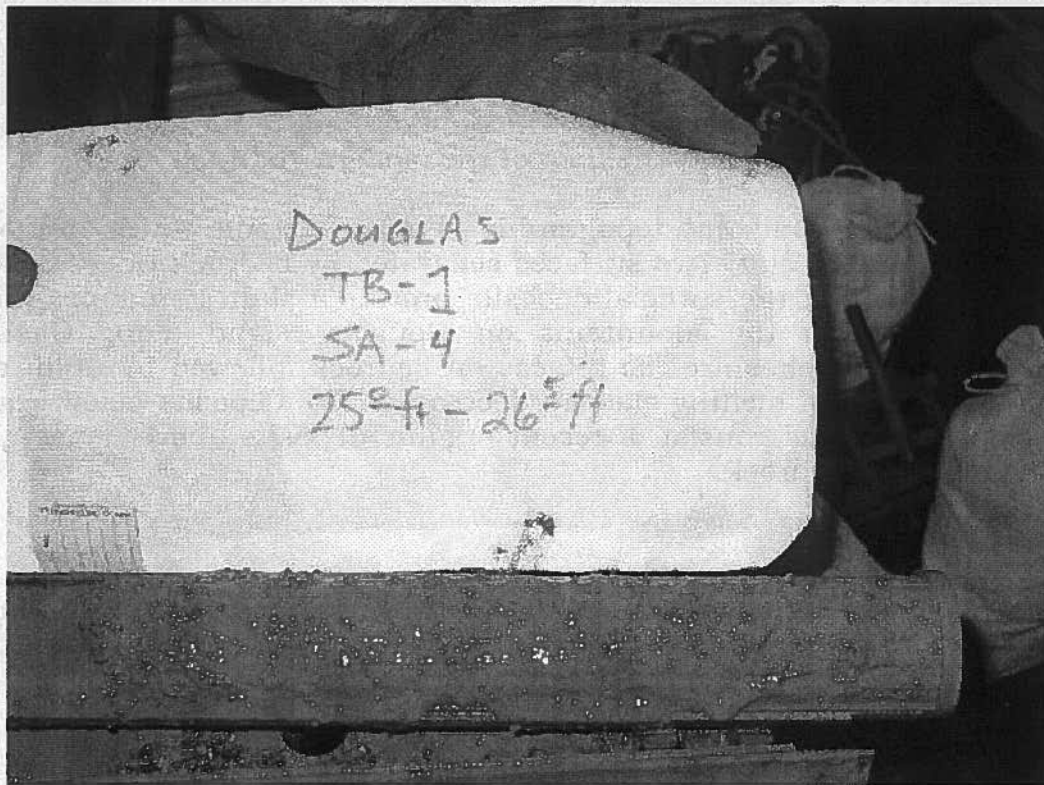 DOUGLAS
TB-1
SA-4
25⁰ ft - 26⁵ ft